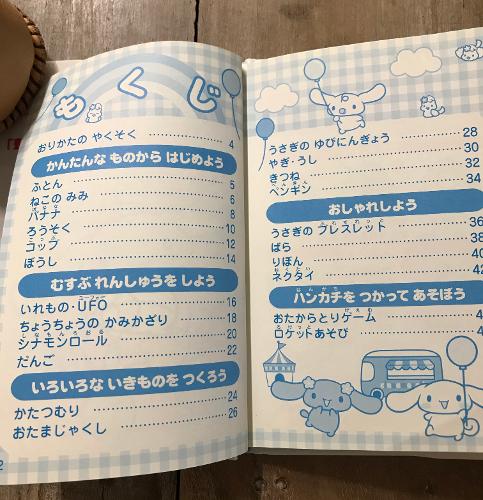 もくじ
おりかたの やくそく 4
かんたんな ものから はじめよう
ふとん 5
ねこの みみ 6
バナナ 8
ろうそく 10
コップ 12
ぼうし 14
むすぶ れんしゅうを しよう
いれもの・UFO 16
ちょうちょうの かみかざり 18
シナモンロール 20
だんご 22
いろいろな いきものを つくろう
かたつむり 24
おたまじゃくし 26
2
うさぎの ゆびにんぎょう 28
やぎ・うし 30
きつね 32
ペンギン 34
おしゃれしよう
うさぎの ブレスレット 36
ばら 38
りぼん 40
ネクタイ 42
ハンカチを つかって あそぼう
おたからとりゲーム 4
ロケットあそび 4